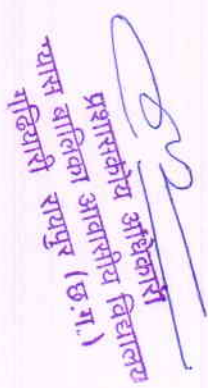 प्रशासकीय अधिकारी
न्यास बालिका आवासीय विद्यालय
गुढियारी रायपुर (छ.ग.)